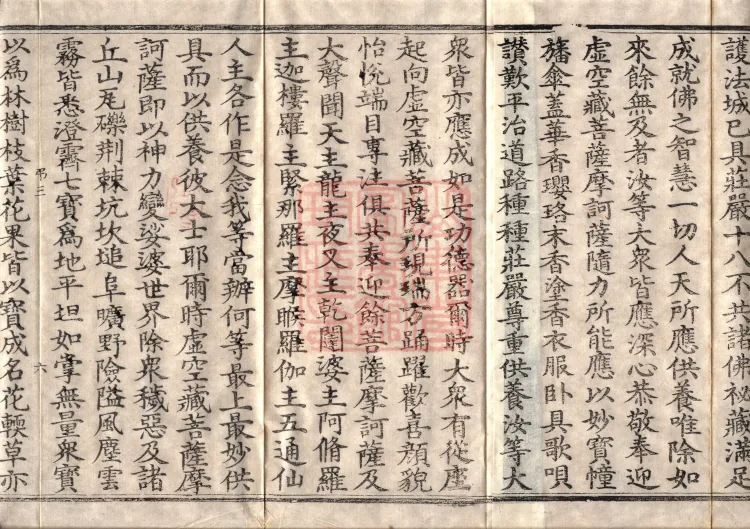 護法城已具莊嚴十八不共諸佛祕藏滿足
成就佛之智慧一切人天所應供養唯除如
來餘無及者汝等大衆皆應深心恭敬奉迎
虛空藏菩薩摩訶薩隨力所能應以妙寶幢
旛傘蓋華香瓔珞末香塗香衣服卧具歌唄
讃歎平治道路種種莊嚴尊重供養汝等大
衆皆亦應成如是功德器爾時大衆有從座
起向虛空藏菩薩所現瑞方踊躍歡喜顔貌
怡悅端目專注俱共奉迎餘菩薩摩訶薩及
大聲聞天主龍主夜叉主乾闥婆主阿脩羅
主迦樓羅主緊那羅主摩睺羅伽主五通仙
人主各作是念我等當辦何等最上最妙供
具而以供養彼大士耶爾時虛空藏菩薩摩
訶薩即以神力變娑婆世界除衆穢惡及諸
丘山瓦礫荆棘坑坎塠阜曠野險隘風塵雲
霧皆悉澄霽七寶爲地平坦如掌無量衆寶
以爲林樹枝葉花果皆以寶成名花輭草亦